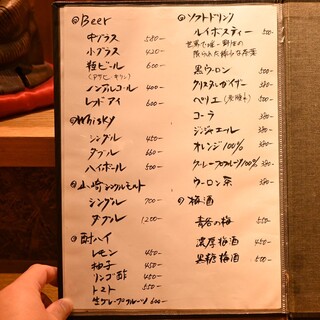 ◎Beer
中グラス 580-
小グラス 420-
瓶ビール 600-
(アサヒ キリン)
ノンアルコール 400-
レッドアイ 600-
◎Whisky
シングル 450-
ダブル 660-
ハイボール 500-
◎山崎シングルモルト
シングル 700-
ダブル 1200-
◎酎ハイ
レモン 450-
柚子 450-
リンゴ酢 450-
トマト 550-
生グレープフルーツ 600-
◎ソフトドリンク
ルイボスティー 500-
黒ウーロン 500-
クリスタルガイザー 380-
ペリエ (炭酸水) 500-
コーラ 380-
ジンジャエール 380-
オレンジ100% 380-
グレープフルーツ100% 380-
ウーロン茶 380-
◎梅酒
550-
濃厚梅酒 450-
黒糖梅酒 500-